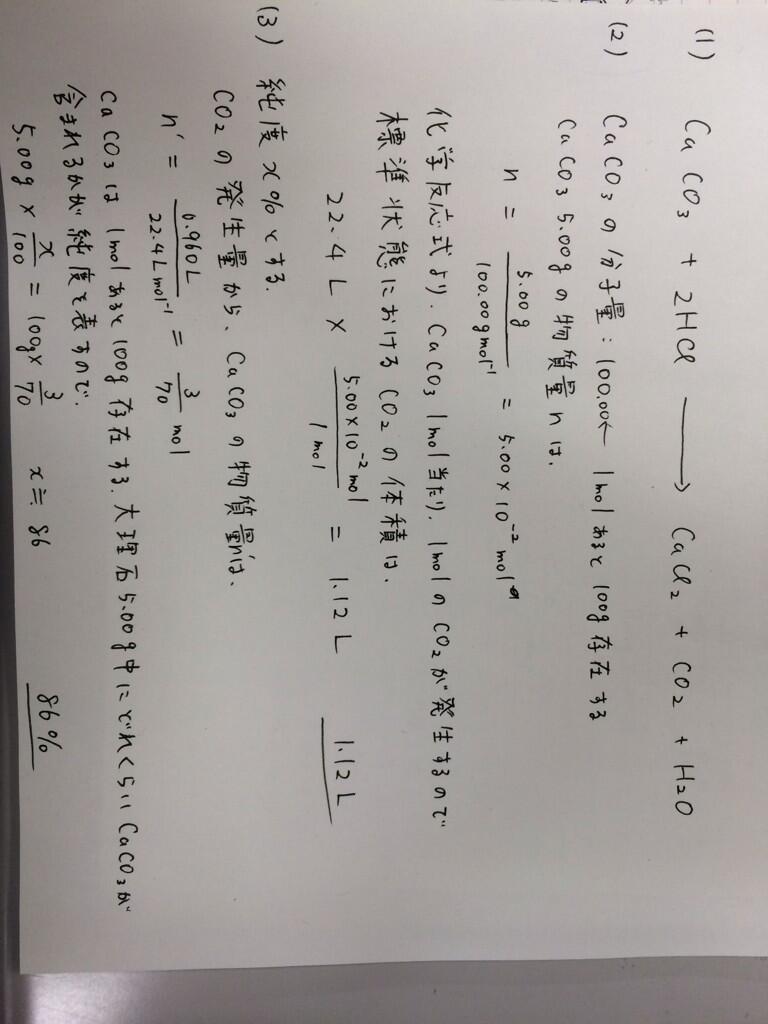 (1) CaCO₃ + 2HCl ⟶ CaCl₂ + CO₂ + H₂O
(2) CaCO₃の分子量：100.00← 1molあると100g存在する
CaCO₃ 5.00gの物質量nは、
n = 5.00g / 100.00gmol⁻¹ = 5.00×10⁻²mol
化学反応式より、CaCO₃ 1mol当たり、1molのCO₂が発生するので
標準状態におけるCO₂の体積は、
22.4L × 5.00×10⁻²mol / 1mol = 1.12L 1.12L
(3) 純度x%とする。
CO₂の発生量から、CaCO₃の物質量n'は、
n' = 0.960L / 22.4Lmol⁻¹ = 3/70 mol
CaCO₃は1molあると100g存在する。大理石5.00g中にどれくらいCaCO₃が
含まれるかが純度を表すので、
5.00g × x/100 = 100g × 3/70 x≒86 86%